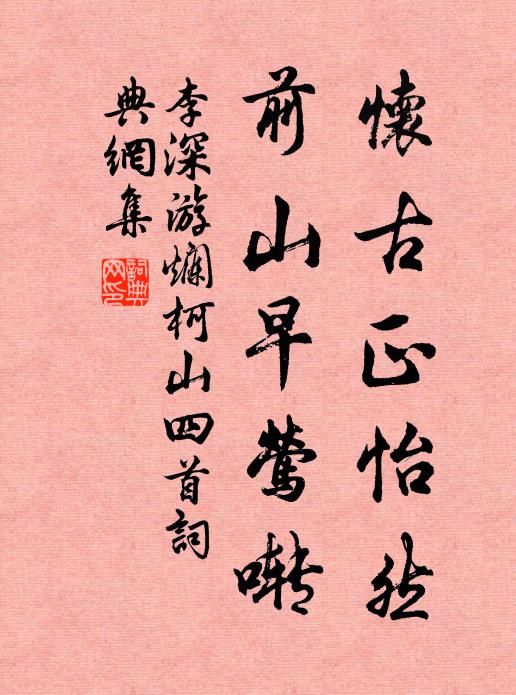 懷古正怡然
前山早鶯囀
李深游爛柯山四首詞
典網集
詞典
网印